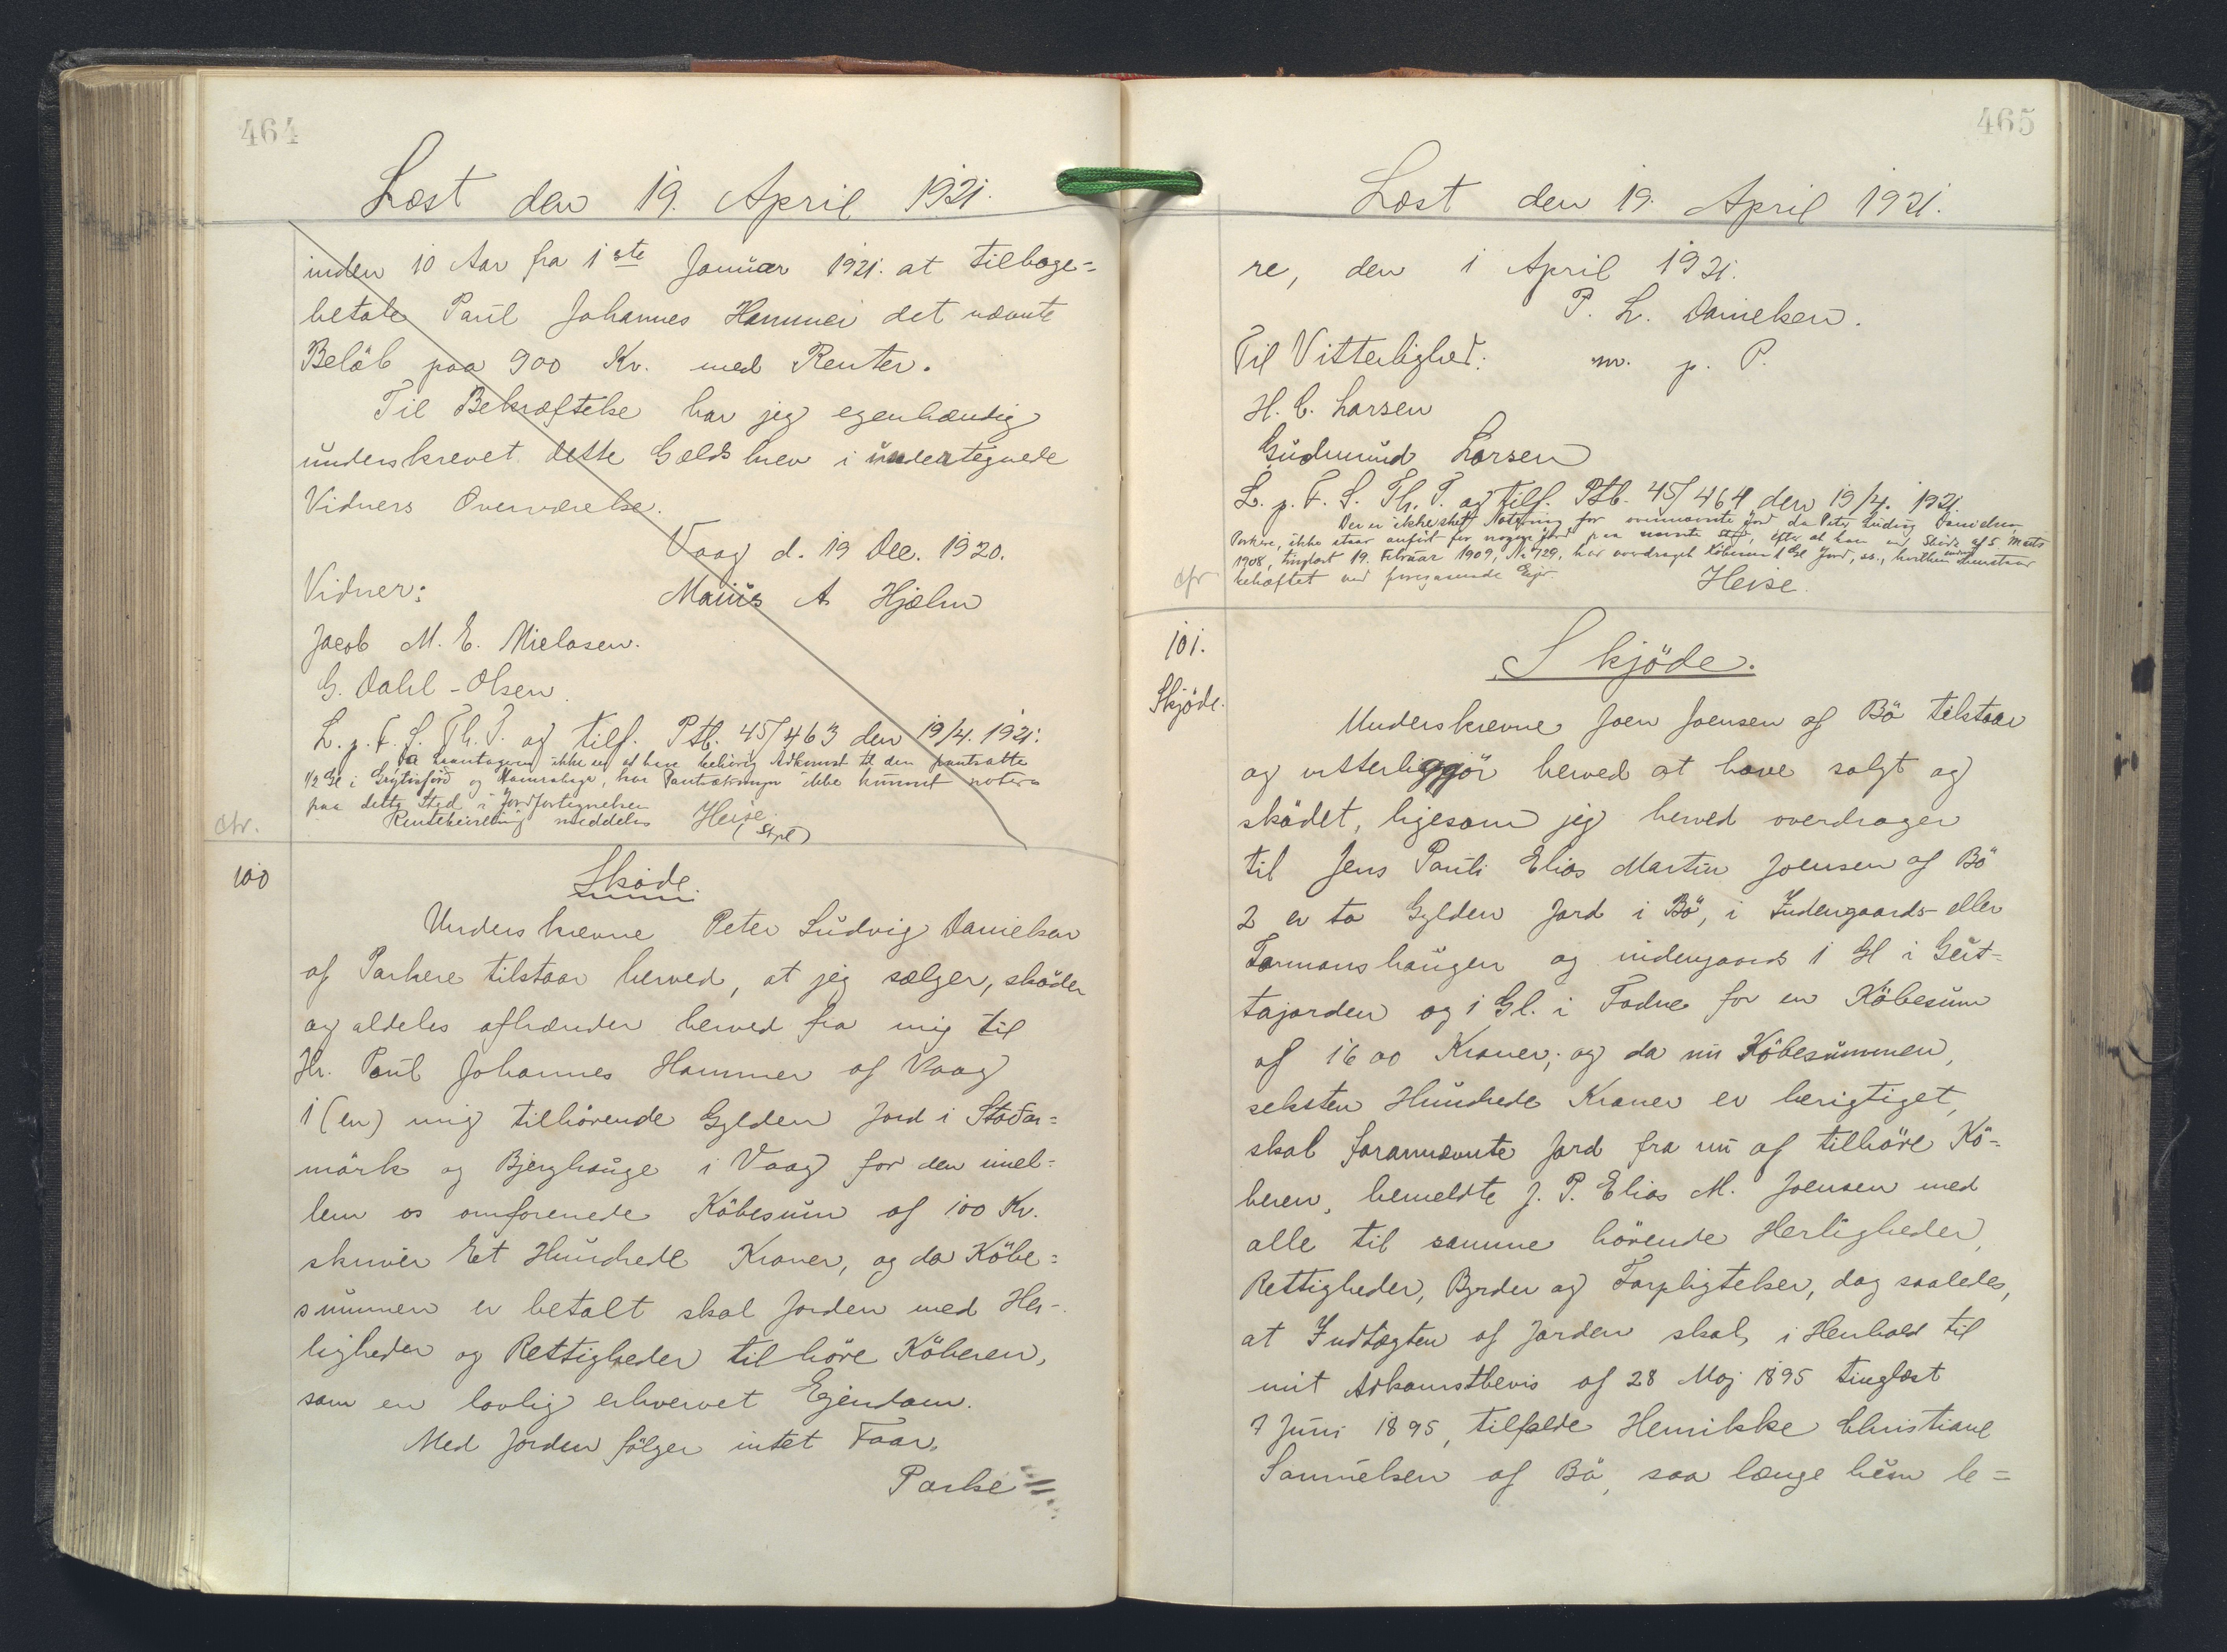 464
Læst den 19. April 1921.
inden 10 Aar fra 1ste Januar 1921. at tilbage=
betale Paul Johannes Hammer det nævnte
Beløb paa 900 Kr. med Renter.
Til Bekræftelse har jeg egenhændig
underskrevet dette Gældsbrev i undertegnede
Vidners Overværelse.
Vaag d. 19 Dec. 1920.
Vidner:
Marius A Hjælm
Jacob M. E. Nielasen.
G. Dahl-Olsen
L. p. F. S. Th. T. og tilf. Ptb. 45/463 den 19/4. 1921.
Da Laantageren ikke ses at have behørig Adkomst til den pantsatte
1/2 Gl i Grytisfórd og Hamrahage, har Pantsætningen ikke kunnet notera
paa dette Sted i Jordfortegnelsen
Rentekvittering meddeles Heise
Stpl)
cfr.
100
Skøde.
Underskrevne Peter Ludvig Danielsen
af Porkere tilstaar herved, at jeg sælger, skøder
og aldeles afhænder herved fra mig til
Hr. Paul Johannes Hammer af Vaag
1 (en) mig tilhørende Gylden Jord i Stóðar=
mørk og Bjerghauge i Vaag for den imel=
lem os omforenede Købesum af 100 Kr.
skriver Et Hundrede Kroner, og da Købe=
summen er betalt skal Jorden med Her-
ligheder og Rettigheder tilhøre Køberen,
som en lovlig erhvervet Ejendom.
Med Jorden følger intet Faar.
Porke=
465
Læst den 19. April 1921.
re, den 1 April 1921.
P. L. Danielsen.
Til Vitterlighed: m. p. P.
H. C. Larsen
Gudmund Larsen
L. p. F. S. Th. T. og tilf. Ptb. 45/464 den 19/4. 1921.
Der er ikke sket Notering for ovennævnte Jord da Peter Ludvig Danielsen
Porkere, ikke staar anført for nogen Jord paa nævnte Sted, efter at han ved Skøde af 5. Marts
1908, tinglæst 19. Februar 1909, No 729, har overdraget Køberen 1 Gl Jord, ss., hvilken
behæftet ved foregaaende Ejer.
Heise.
cfr
101.
Skjøde.
Skjøde.
Underskrevne Joen Joensen af Bø tilstaar
og vitterliggjør herved at have solgt og
skødet, ligesom jeg herved overdrager
til Jens Pauli Elias Martin Joensen af Bø
2 er to Gylden Jord i Bø, i Indengaards- eller
Tormanshaugen og indengaards 1 Gl i Geit-
tajorden og 1 Gl. i Fodne for en Købesum
af 1600 Kroner; og da nu Købesummen,
seksten Hundrede Kroner er berigtiget,
skal forannævnte Jord fra nu af tilhøre Kø-
beren, bemeldte J. P. Elias M. Joensen med
alle til samme hørende Herligheder,
Rettigheder, Byrder og Forpligtelser, dog saaledes,
at Indtægten af Jorden skal, i Henhold til
mit Adkomstbevis af 28 Maj 1895 tinglæst
7 Juni 1895, tilfalde Henrikke Christiane
Samuelsen af Bø, saa længe hun le=